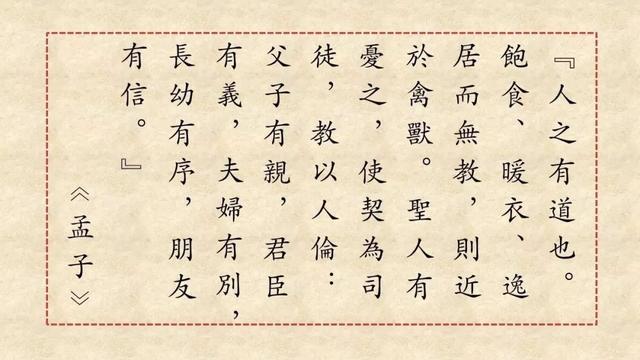 『人之有道也。
飽食、暖衣、逸
居而無教，則近
於禽獸。聖人有
憂之，使契為司
徒，教以人倫：
父子有親，君臣
有義，夫婦有別，
長幼有序，朋友
有信。』
《孟子》